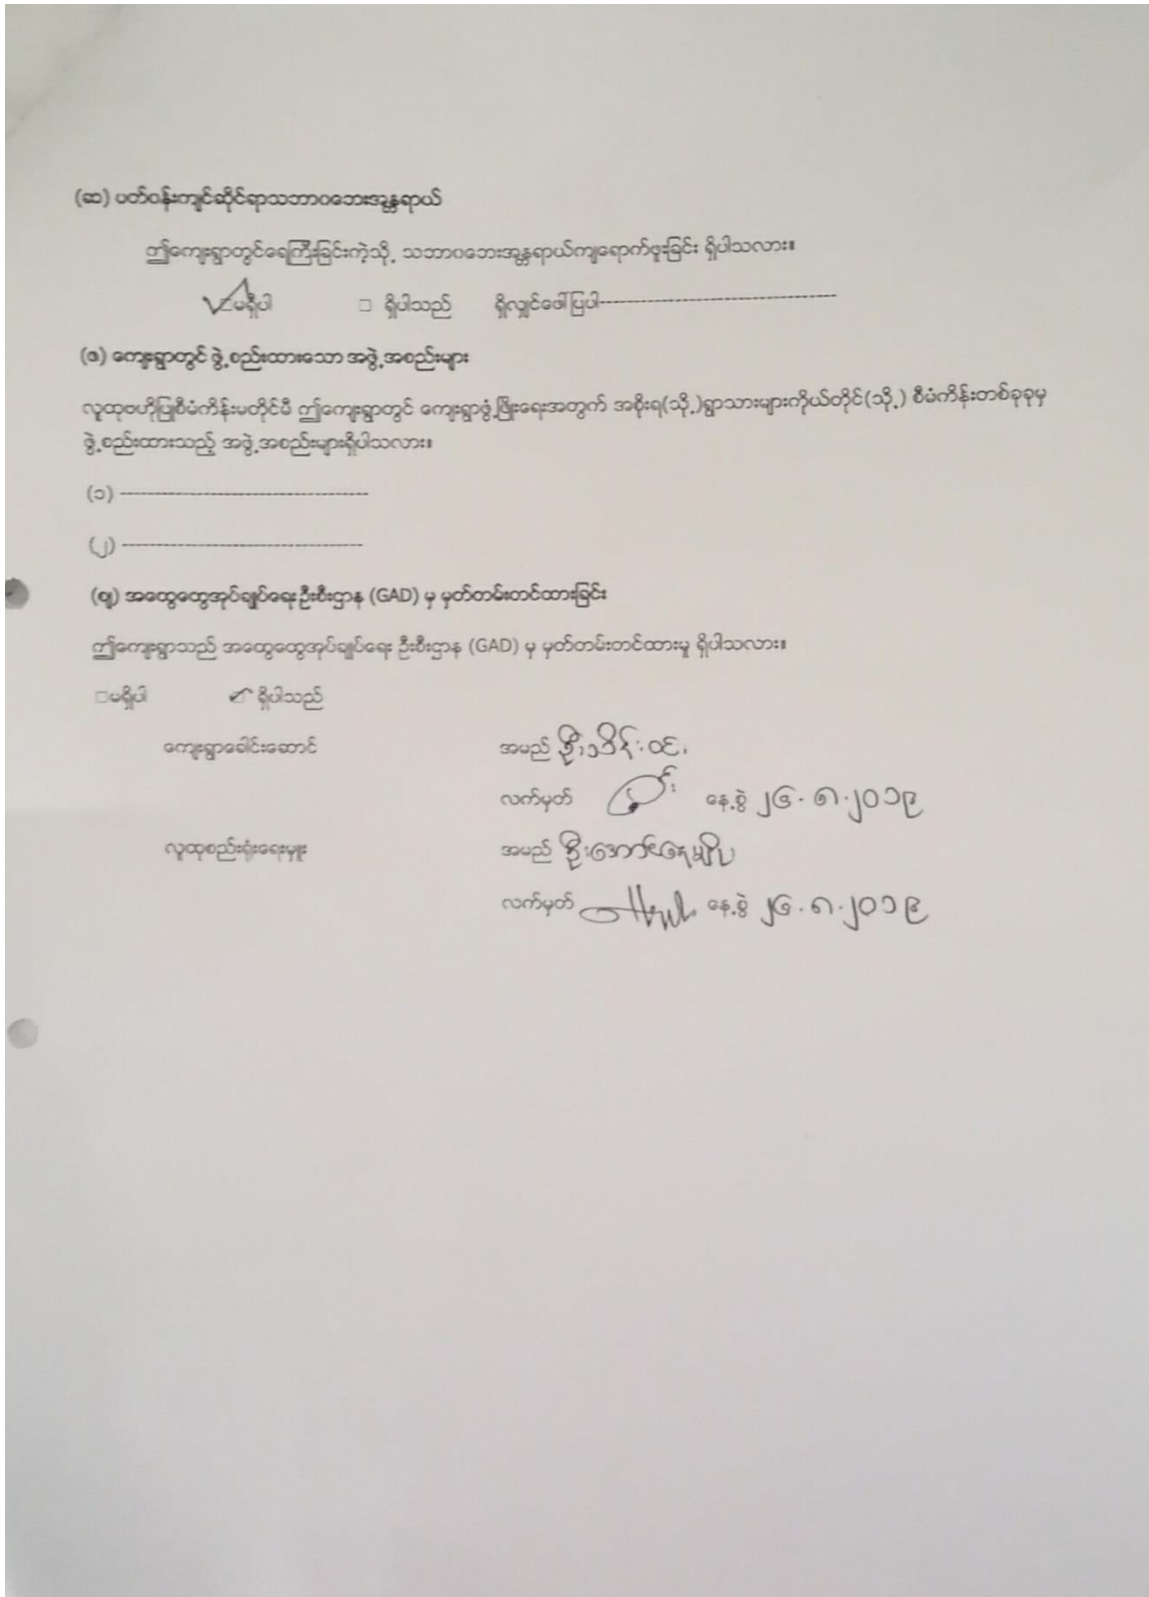 (ဆ) ပတ်ဝန်းကျင်ဆိုင်ရာသဘာဝဘေးအန္တရာယ်
ဤကျေးရွာတွင်ရေကြီးခြင်းကဲ့သို့ သဘာဝဘေးအန္တရာယ်ကျရောက်ဖူးခြင်း ရှိပါသလား။
မရှိပါ □ ရှိပါသည် ရှိလျှင်ဖေါ်ပြပါ------------------------------------
(ဇ) ကျေးရွာတွင် ဖွဲ့စည်းထားသော အဖွဲ့အစည်းများ
လူထုဗဟိုပြုစီမံကိန်းမတိုင်မီ ဤကျေးရွာတွင် ကျေးရွာဖွံ့ဖြိုးရေးအတွက် အစိုးရ(သို့)ရွာသားများကိုယ်တိုင်(သို့) စီမံကိန်းတစ်ခုခုမှ
ဖွဲ့စည်းထားသည့် အဖွဲ့အစည်းများရှိပါသလား။
(၁) --------------------------------------
(၂) -------------------------------------
(ဈ) အထွေထွေအုပ်ချုပ်ရေးဦးစီးဌာန (GAD) မှ မှတ်တမ်းတင်ထားခြင်း
ဤကျေးရွာသည် အထွေထွေအုပ်ချုပ်ရေး ဦးစီးဌာန (GAD) မှ မှတ်တမ်းတင်ထားမှု ရှိပါသလား။
□မရှိပါ ရှိပါသည်
ကျေးရွာခေါင်းဆောင် အမည် ဦးသိန်းဝင်း
လက်မှတ် နေ့စွဲ ၂၄.၈.၂၀၁၉
လူထုစည်းရုံးရေးမှူး အမည် ဦးအောင်နေမျိုး
လက်မှတ် နေ့စွဲ ၂၄.၈.၂၀၁၉